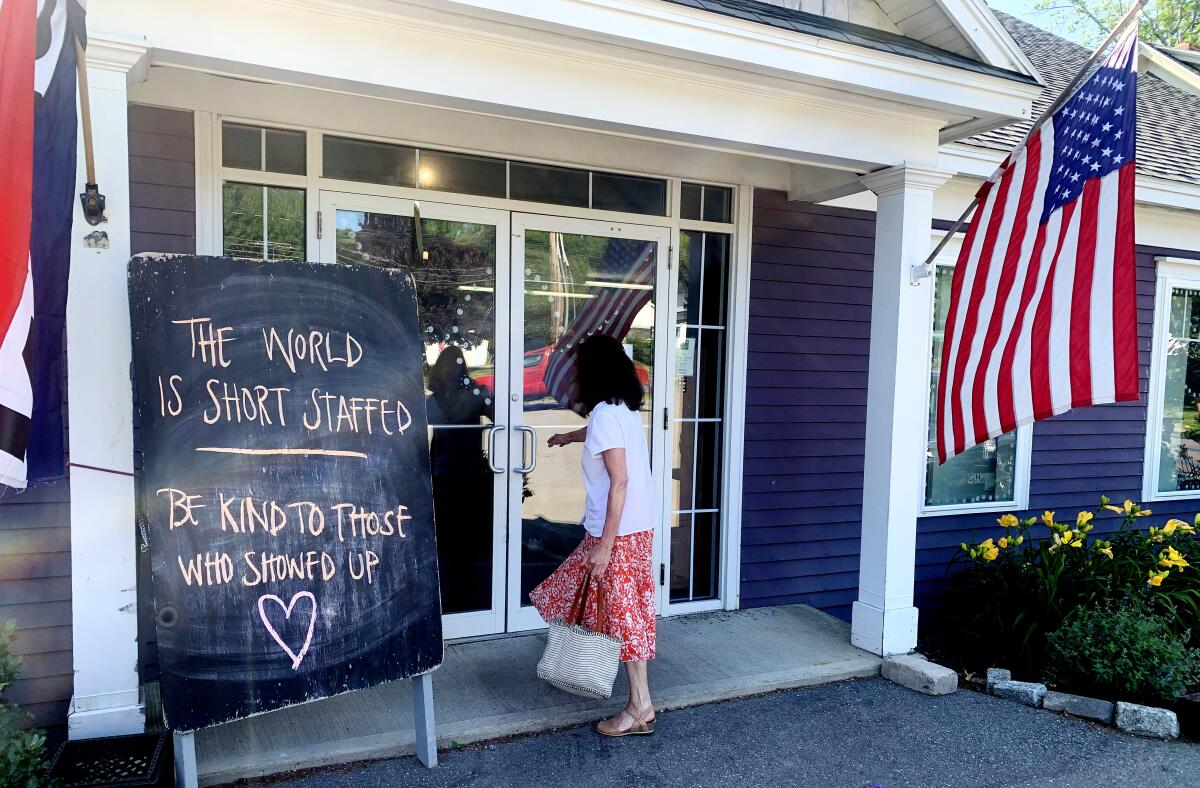 THE WORLD
IS SHORT STAFFED
BE KIND TO THOSE
WHO SHOWED UP